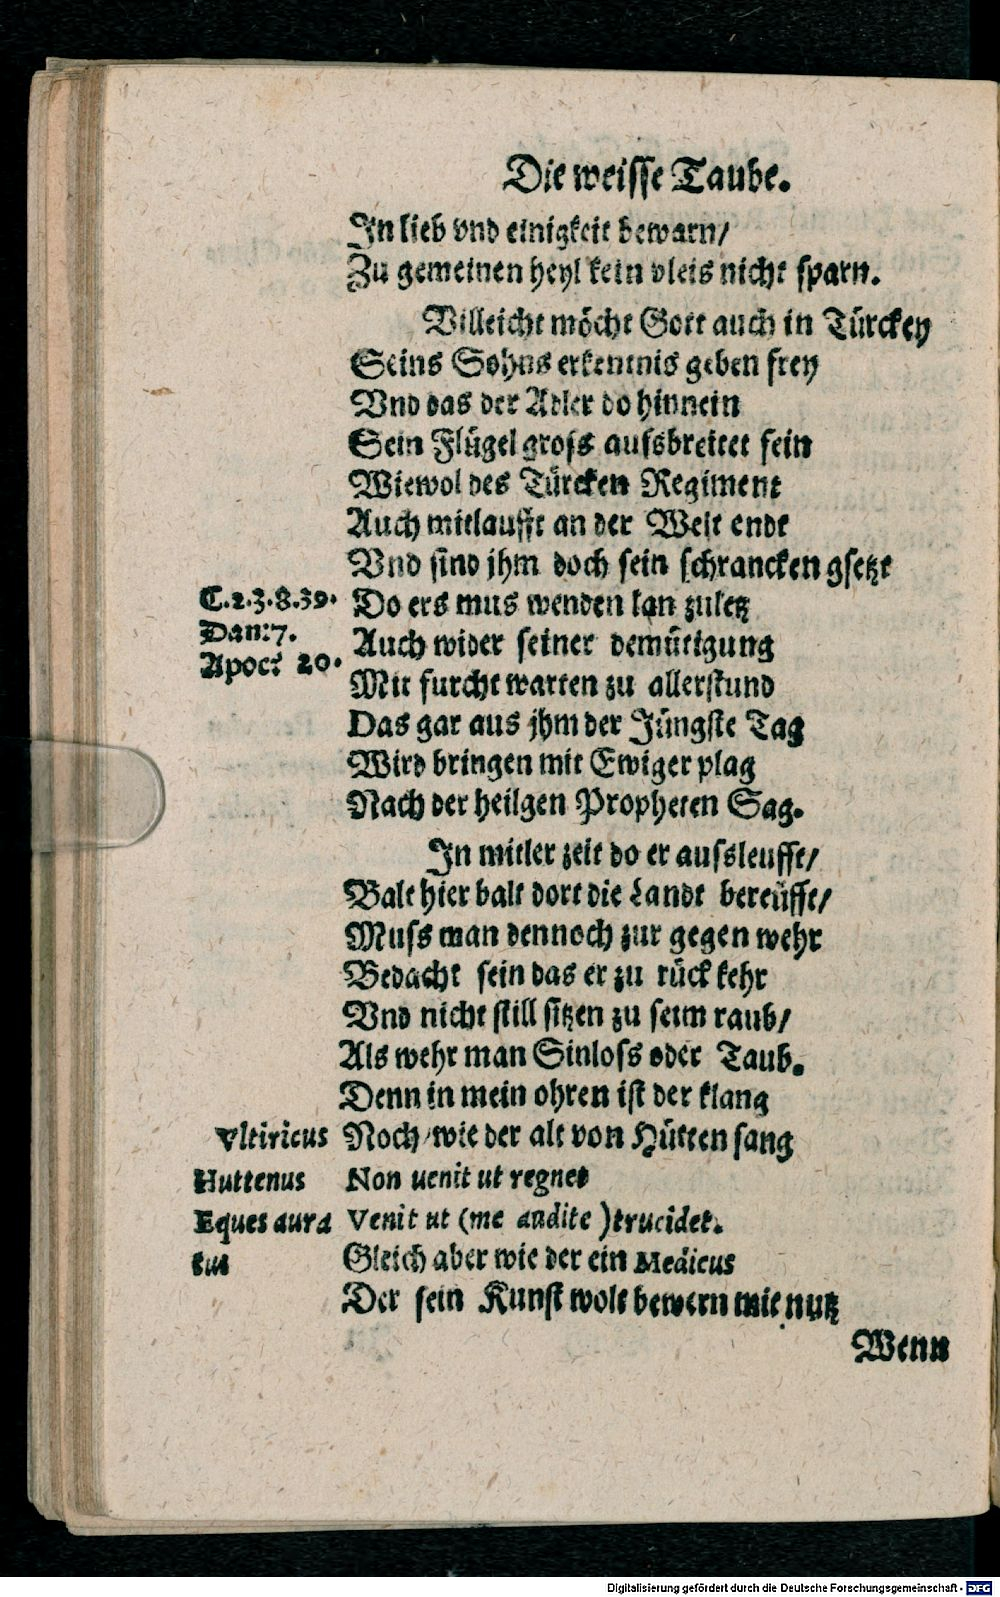 Die weisse Taube.
In lieb vnd einigkeit bewarn/
Zu gemeinen heyl kein vleis nicht sparn.
Villeicht möcht Gott auch in Türckey
Seins Sohns erkentnis geben frey
Vnd das der Adler do hinnein
Sein Flügel gross aussbreitet fein
Wiewol des Türcken Regiment
Auch mitlaufft an der Welt endt
Vnd sind jhm doch sein schrancken gsetzt
C.2.3.8.39. Do ers mus wenden lan zuletz
Dan:7. Auch wider seiner demütigung
Apoc: 20. Mit furcht warten zu allerstund
Das gar aus jhm der Jüngste Tag
Wird bringen mit Ewiger plag
Nach der heilgen Propheten Sag.
In mitler zeit do er aussleufft/
Balt hier balt dort die Landt bereüfft/
Muss man dennoch zur gegen wehr
Bedacht sein das er zu rück kehr
Vnd nicht still sitzen zu seim raub/
Als wehr man Sinloss oder Taub.
Denn in mein ohren ist der klang
Vltiricus Noch wie der alt von Hütten sang
Huttenus Non uenit ut regnet
Eques aura Venit ut (me audite) trucidet.
tus Gleich aber wie der ein Medicus
Der sein Kunst wolt bewern mit nutz
Wenn
Digitalisierung gefördert durch die Deutsche Forschungsgemeinschaft - DFG